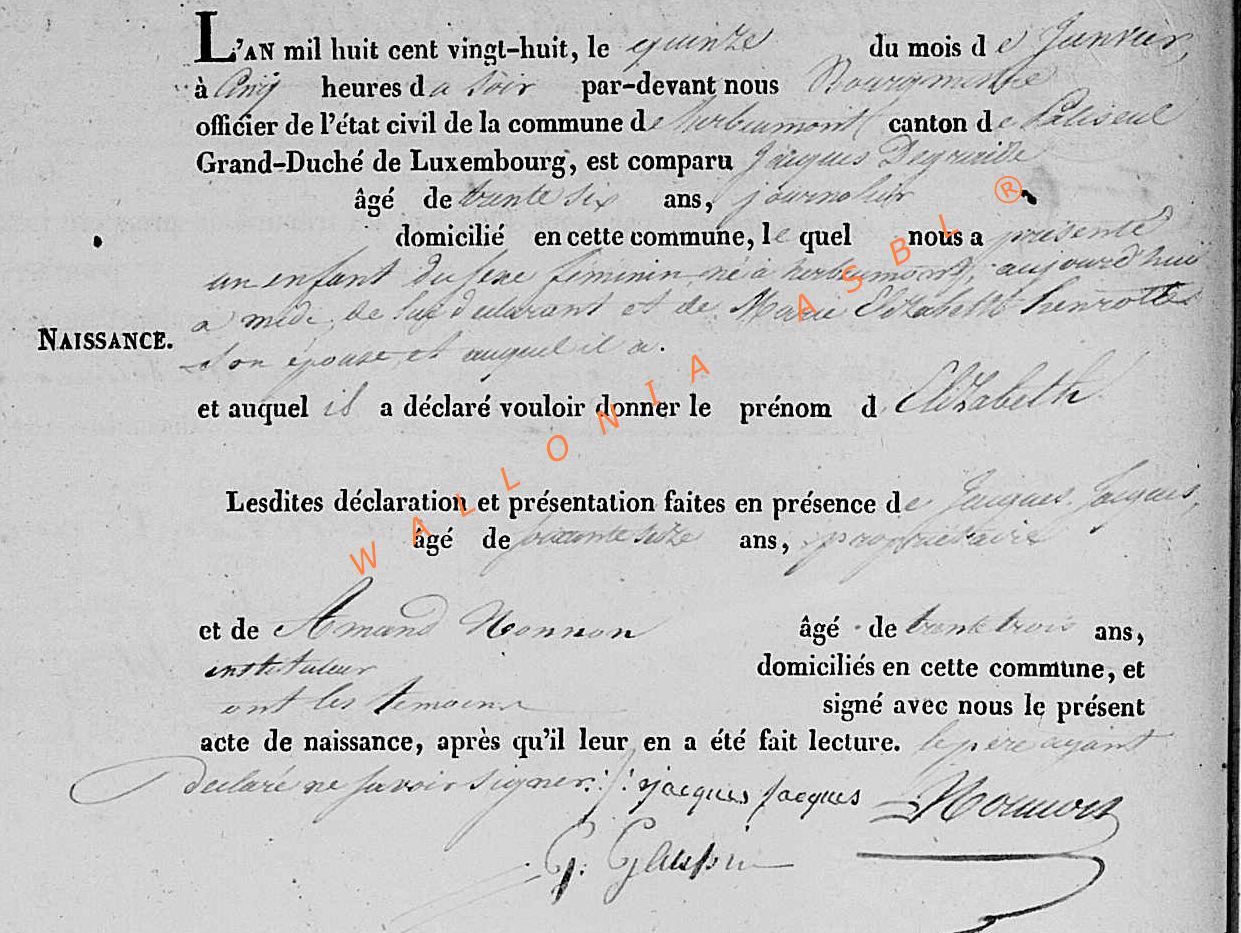 L'AN mil huit cent vingt-huit, le quinze du mois de Janvier,
à Cinq heures da soir par-devant nous Bourgmestre
officier de l'état civil de la commune de herbeumont canton de Paliseul
Grand-Duché de Luxembourg, est comparu Jacques
âgé de trente six ans, journalier
domicilié en cette commune, le quel nous a présenté
un enfant du sexe feminin né à herbeumont, aujourd'hui
a midi, de lui declarant et de Marie Elizabeth henrotte
son épouse, et auquel il a.
NAISSANCE.
et auquel il a déclaré vouloir donner le prénom d Elizabeth
Lesdites déclaration et présentation faites en présence de Jacques Jacques,
âgé de soixante seize ans, propriétaire
et de Amand Nonnon âgé de trente trois ans,
instituteur domiciliés en cette commune, et
ont les temoins signé avec nous le présent
acte de naissance, après qu'il leur en a été fait lecture. le père ayant
declaré ne savoir signer. j: jacques jacques Nonnon
WALLONIA ASBL ®